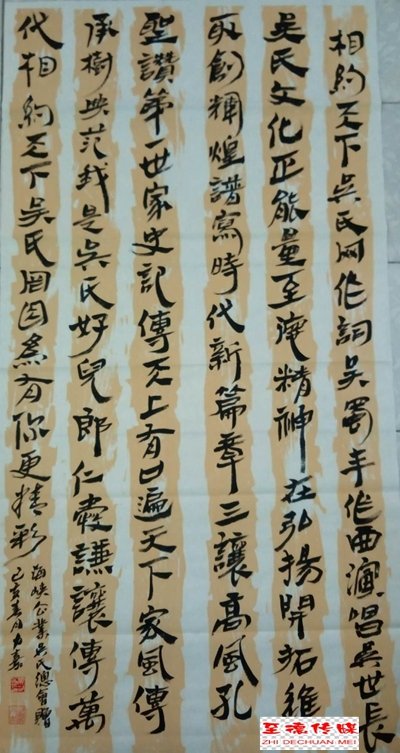 相約天下吳氏网作詞吳蜀丰作曲演唱吳世長
吳氏文化正能量至德精神在弘揚開拓進
取創輝煌譜寫時代新篇章三讓高風孔
聖讚第一世家史記傳天上有口遍天下家風傳
承樹典范我是吳氏好兒郎仁愛謙讓傳萬
代相約天下吳氏网因為有你更精彩
海峽企業吳氏總會贈
己亥春月
至德传媒
ZHI DECHUAN MEI